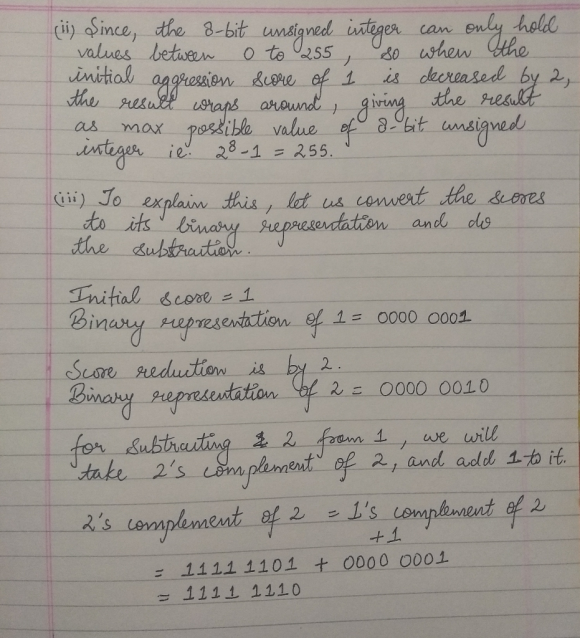 (ii) Since, the 8-bit unsigned integer can only hold
values between 0 to 255, so when the
initial aggression score of 1 is decreased by 2,
the result wraps around, giving the result
as max possible value of 8-bit unsigned
integer ie. 2⁸-1 = 255.
(iii) To explain this, let us convert the scores
to its binary representation and do
the subtraction.
Initial score = 1
Binary representation of 1 = 0000 0001
Score reduction is by 2.
Binary representation of 2 = 0000 0010
for subtracting 2 from 1, we will
take 2's complement of 2, and add 1 to it.
2's complement of 2 = 1's complement of 2
+1
= 1111 1101 + 0000 0001
= 1111 1110